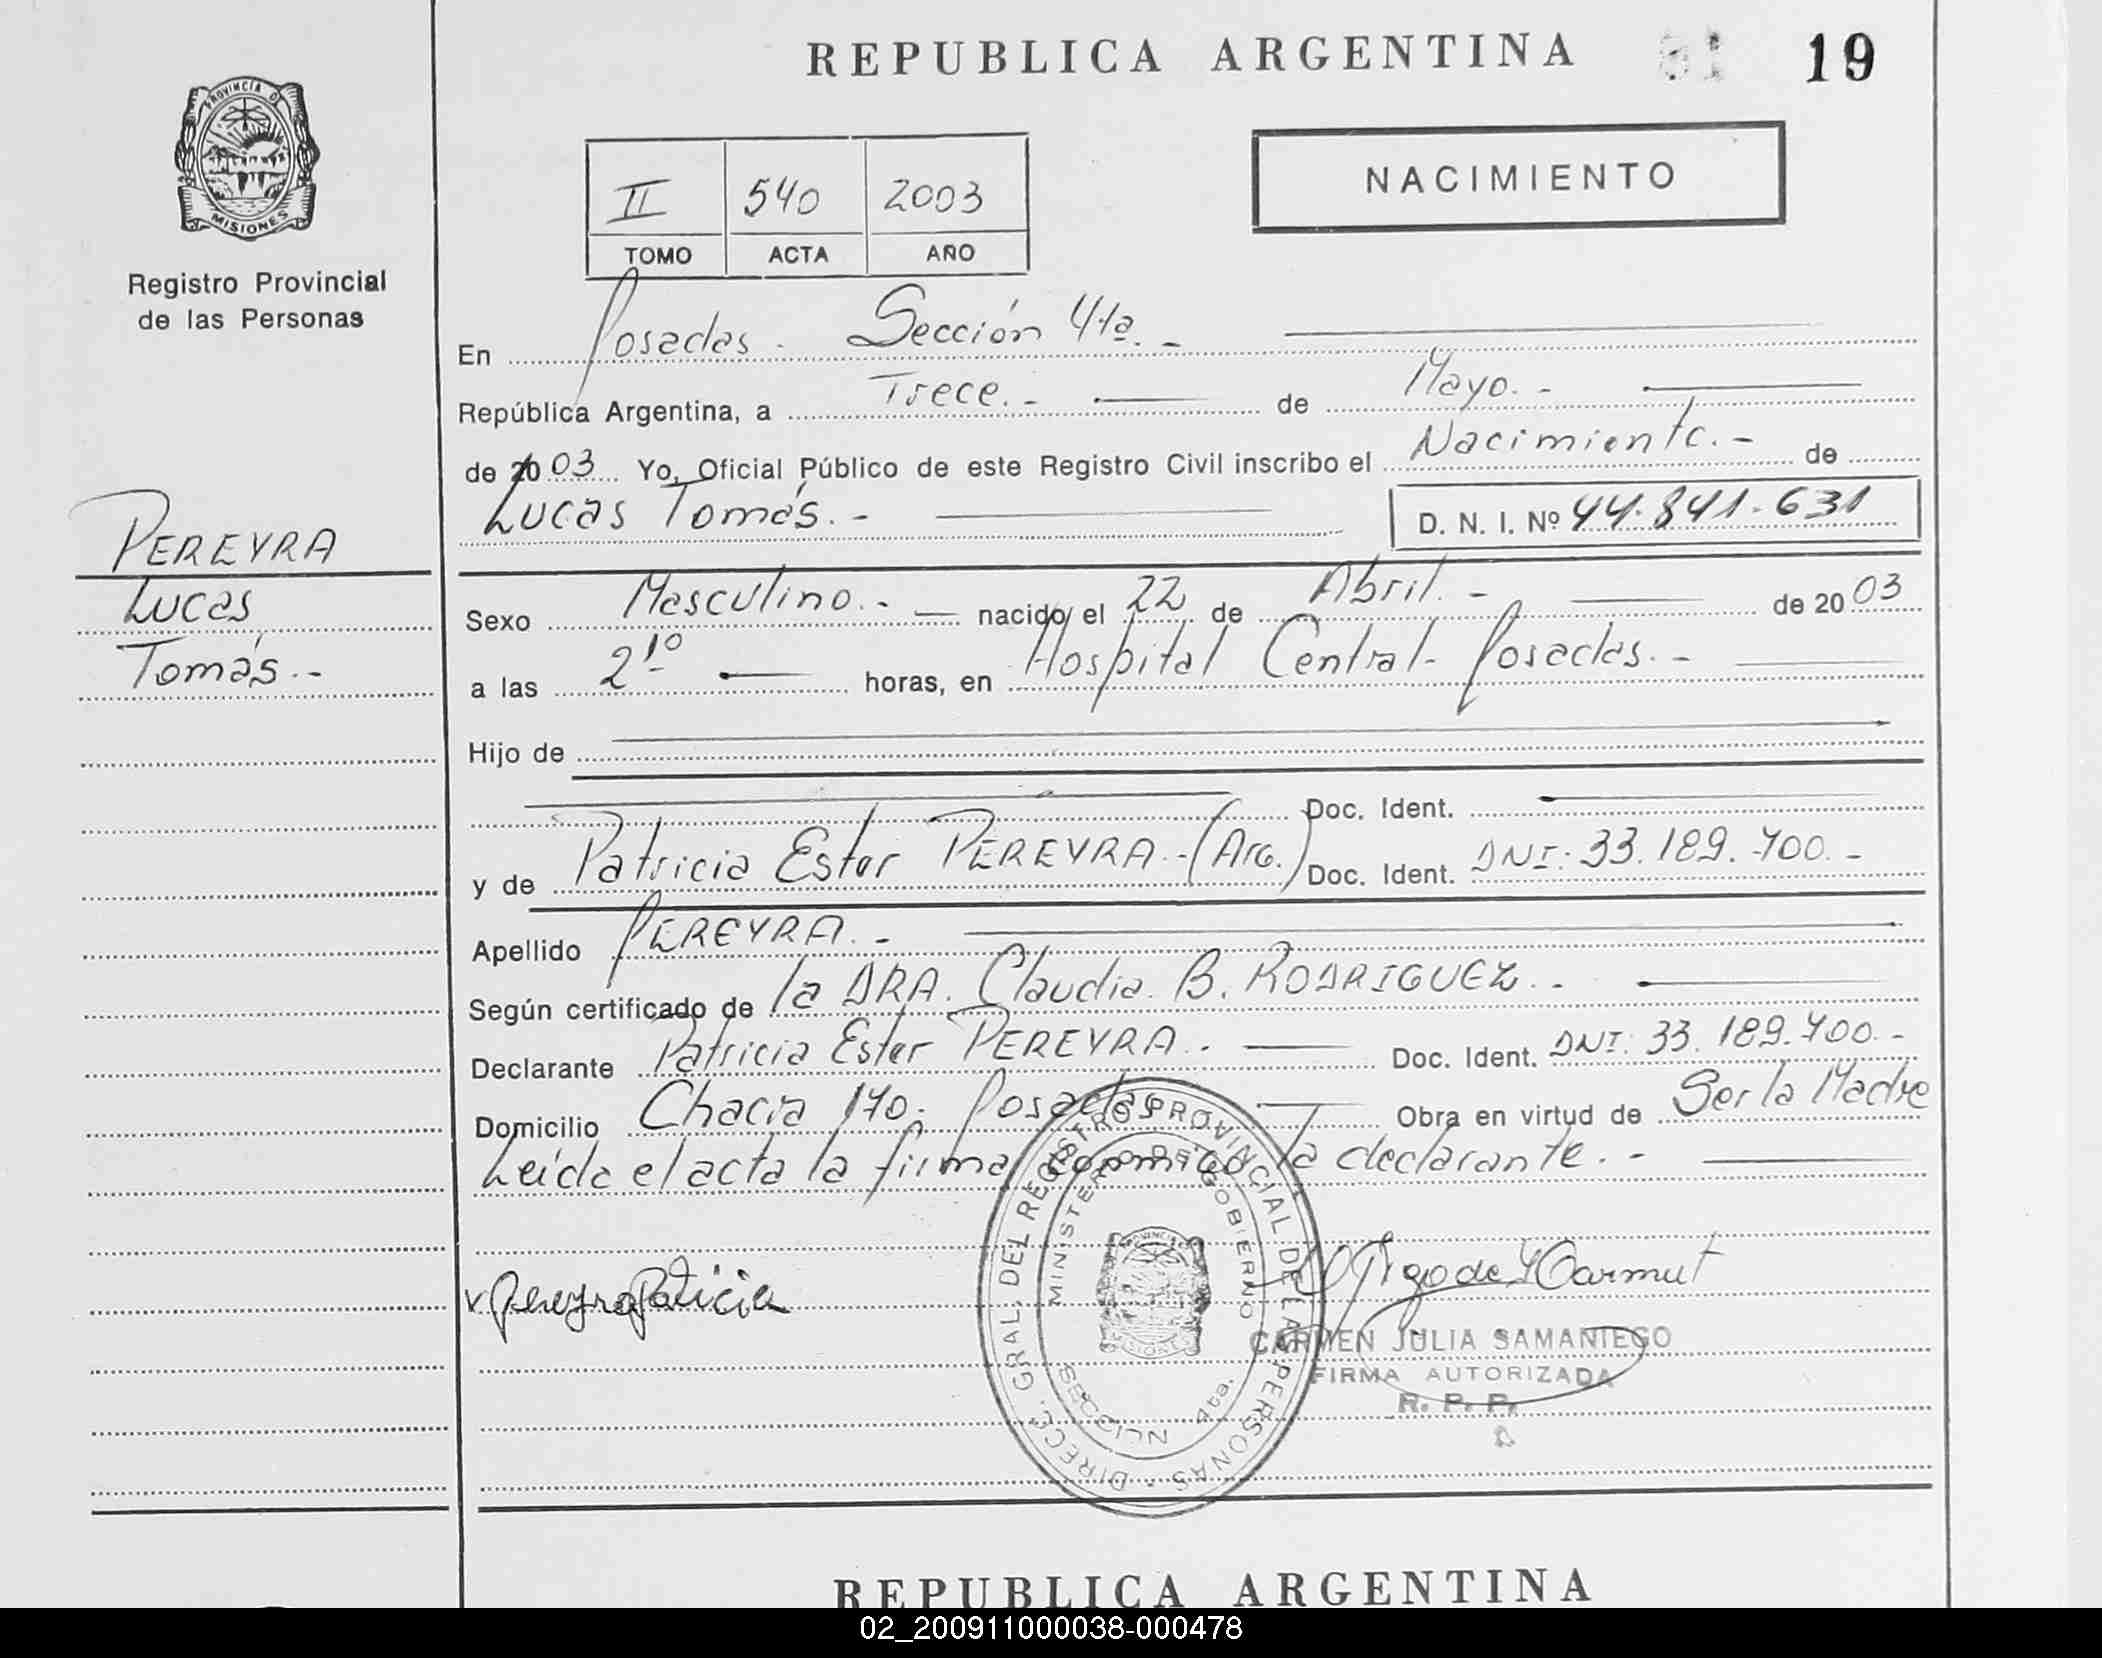 REPUBLICA ARGENTINA 19
PROVINCIA DE
MISIONES
Registro Provincial
de las Personas
NACIMIENTO
II 540 2003
TOMO ACTA AÑO
En Posadas - Sección 4ta. -
República Argentina, a Trece. - de Mayo. -
de 2003 Yo, Oficial Público de este Registro Civil inscribo el Nacimiento. - de
Lucas Tomás. - D. N. I. Nº 44.841.631
PEREYRA
Lucas
Tomás. -
Sexo Masculino. - nacido el 22 de Abril. - de 2003
a las 2 10 horas, en Hospital Central - Posadas. -
Hijo de
Doc. Ident.
y de Patricia Ester PEREYRA. - (Arg.) Doc. Ident. DNI: 33.189.400. -
Apellido PEREYRA. -
Según certificado de la DRA. Claudia B. RODRIGUEZ. -
Declarante Patricia Ester PEREYRA. - Doc. Ident. DNI: 33.189.400. -
Domicilio Chacra 140. Posadas Obra en virtud de Ser la Madre
Leída el acta la firma conmigo la declarante. -
DIRECC. GRAL. DEL REGISTRO PROVINCIAL DE LAS PERSONAS
MINISTERIO DE GOBIERNO
SECCION 4ta.
Pereyra Patricia
CARMEN JULIA SAMANIEGO
FIRMA AUTORIZADA
R. P. P.
REPUBLICA ARGENTINA
02_200911000038-000478